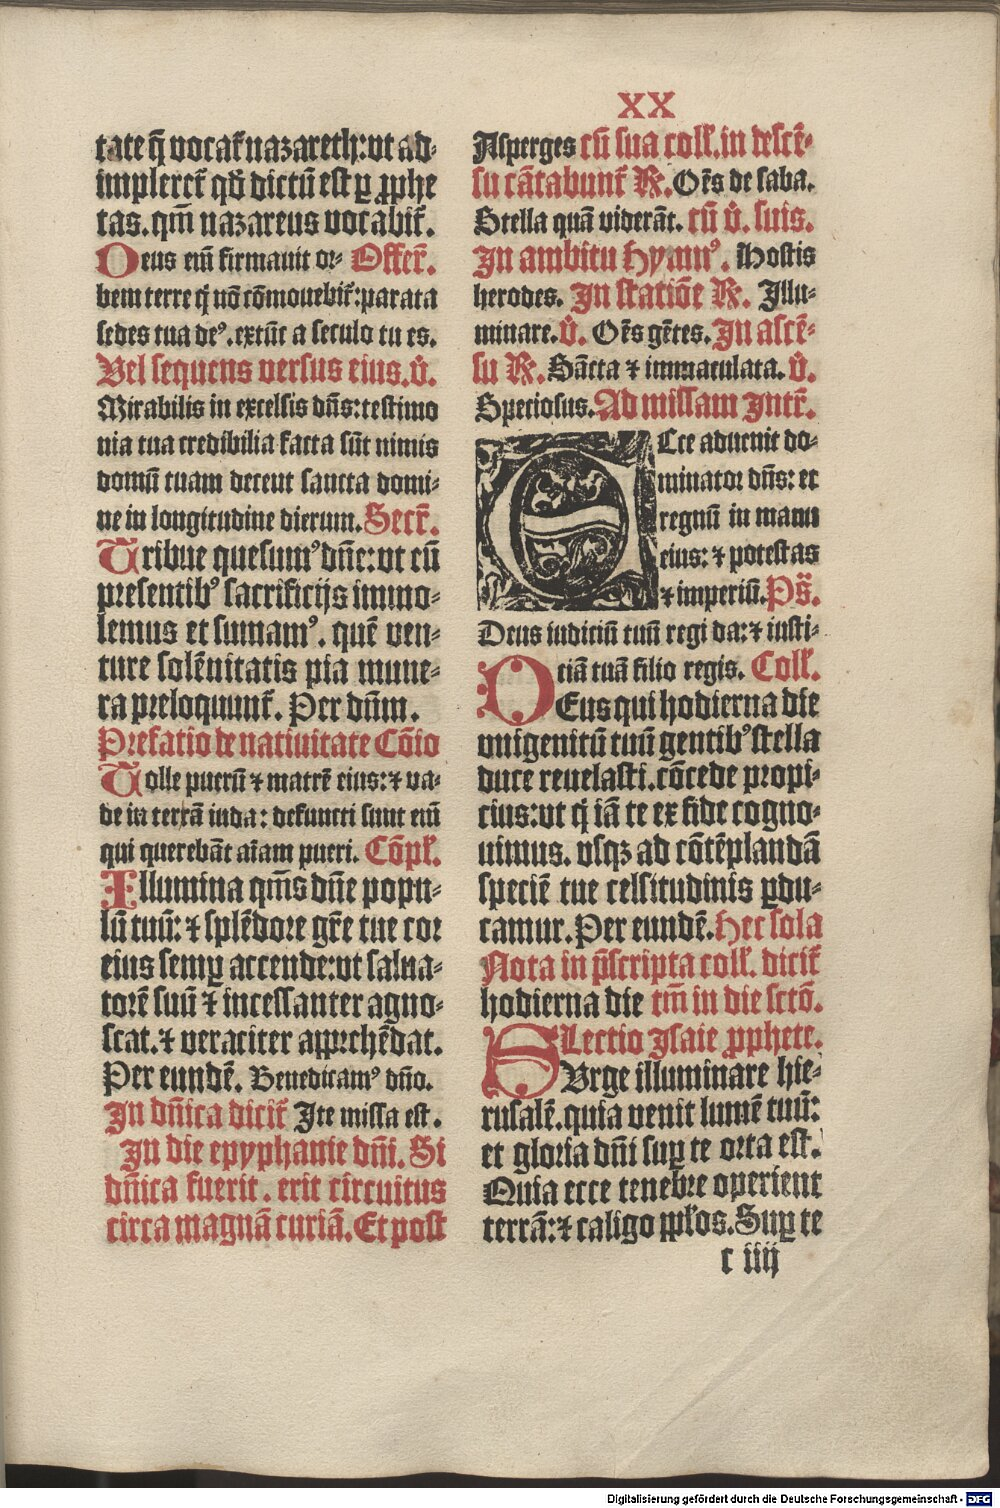 XX
tate q̄ vocat᷑ nazareth: vt ad-
impleret᷑ qď dictū est ꝑ ꝓphe
tas. qm̄ nazareus vocabit᷑.
Deus em̄ firmauit or- Offer̄.
bem terre q̇ nō cōmouebit᷑: parata
sedes tua deꝰ. extūc a seculo tu es.
Vel sequens versus eius. v̇.
Mirabilis in excelsis dn̄s: testimo
nia tua credibilia facta sūt nimis
domū tuam decent sancta domi-
ne in longitudine dierum. Secr̄.
Tribue quesumꝰ dn̄e: vt cū
presentibꝰ sacrificijs immo-
lemus et sumamꝰ. quē ven-
ture solēnitatis pia mune-
ra preloquunt᷑. Per dn̄m.
Prefatio de natiuitate Cōio
Tolle puerū ⁊ matrē eius: ⁊ va-
de in terrā iuda: defuncti sunt em̄
qui querebāt aīam pueri. Cōpl̄.
Illumina qm̄s dn̄e popu-
lū tuū: ⁊ splēdore gr̄e tue cor
eius semꝑ accende: vt salua-
torē suū ⁊ incessanter agno-
scat. ⁊ veraciter apprehēdat.
Per eundē. Benedicamꝰ dn̄o.
In dn̄ica dicit᷑ Ite missa est.
In die epyphanie dn̄i. Si
dn̄ica fuerit. erit circuitus
circa magnā curiā. Et post
Asperges cū sua coll̄. in descē-
su cātabunt᷑ ℟. Oēs de saba.
Stella quā viderāt. cū v̇. suis.
In ambitu Hymnꝰ. Hostis
herodes. In statiōe ℟. Illu-
minare. v̇. Oēs gētes. In ascē-
su ℟. Sācta ⁊ immaculata. v̇.
Speciosus. Ad missam Intr̄.
ECce aduenit do-
minator dn̄s: et
regnū in manu
eius: ⁊ potestas
⁊ imperiū. Ps̄.
Deus iudiciū tuū regi da: ⁊ iusti-
ciā tuā filio regis. Coll̄.
DEus qui hodierna die
vnigenitū tuū gentibꝰ stella
duce reuelasti. cōcede propi-
cius: vt q̇ iā te ex fide cogno-
uimus. vsqꝫ ad cōtēplandā
speciē tue celsitudinis ꝑdu-
camur. Per eundē. Hec sola
Nota in p̄scripta coll̄. dicit᷑
hodierna die tm̄ in die sctō.
Lectio Isaie ꝓphete.
SVrge illuminare hie-
rusalē. quia venit lumē tuū:
et gloria dn̄i suꝑ te orta est.
Quia ecce tenebre operient
terrā: ⁊ caligo ppl̄os. Suꝑ te
c iiij
Digitalisierung gefördert durch die Deutsche Forschungsgemeinschaft - DFG